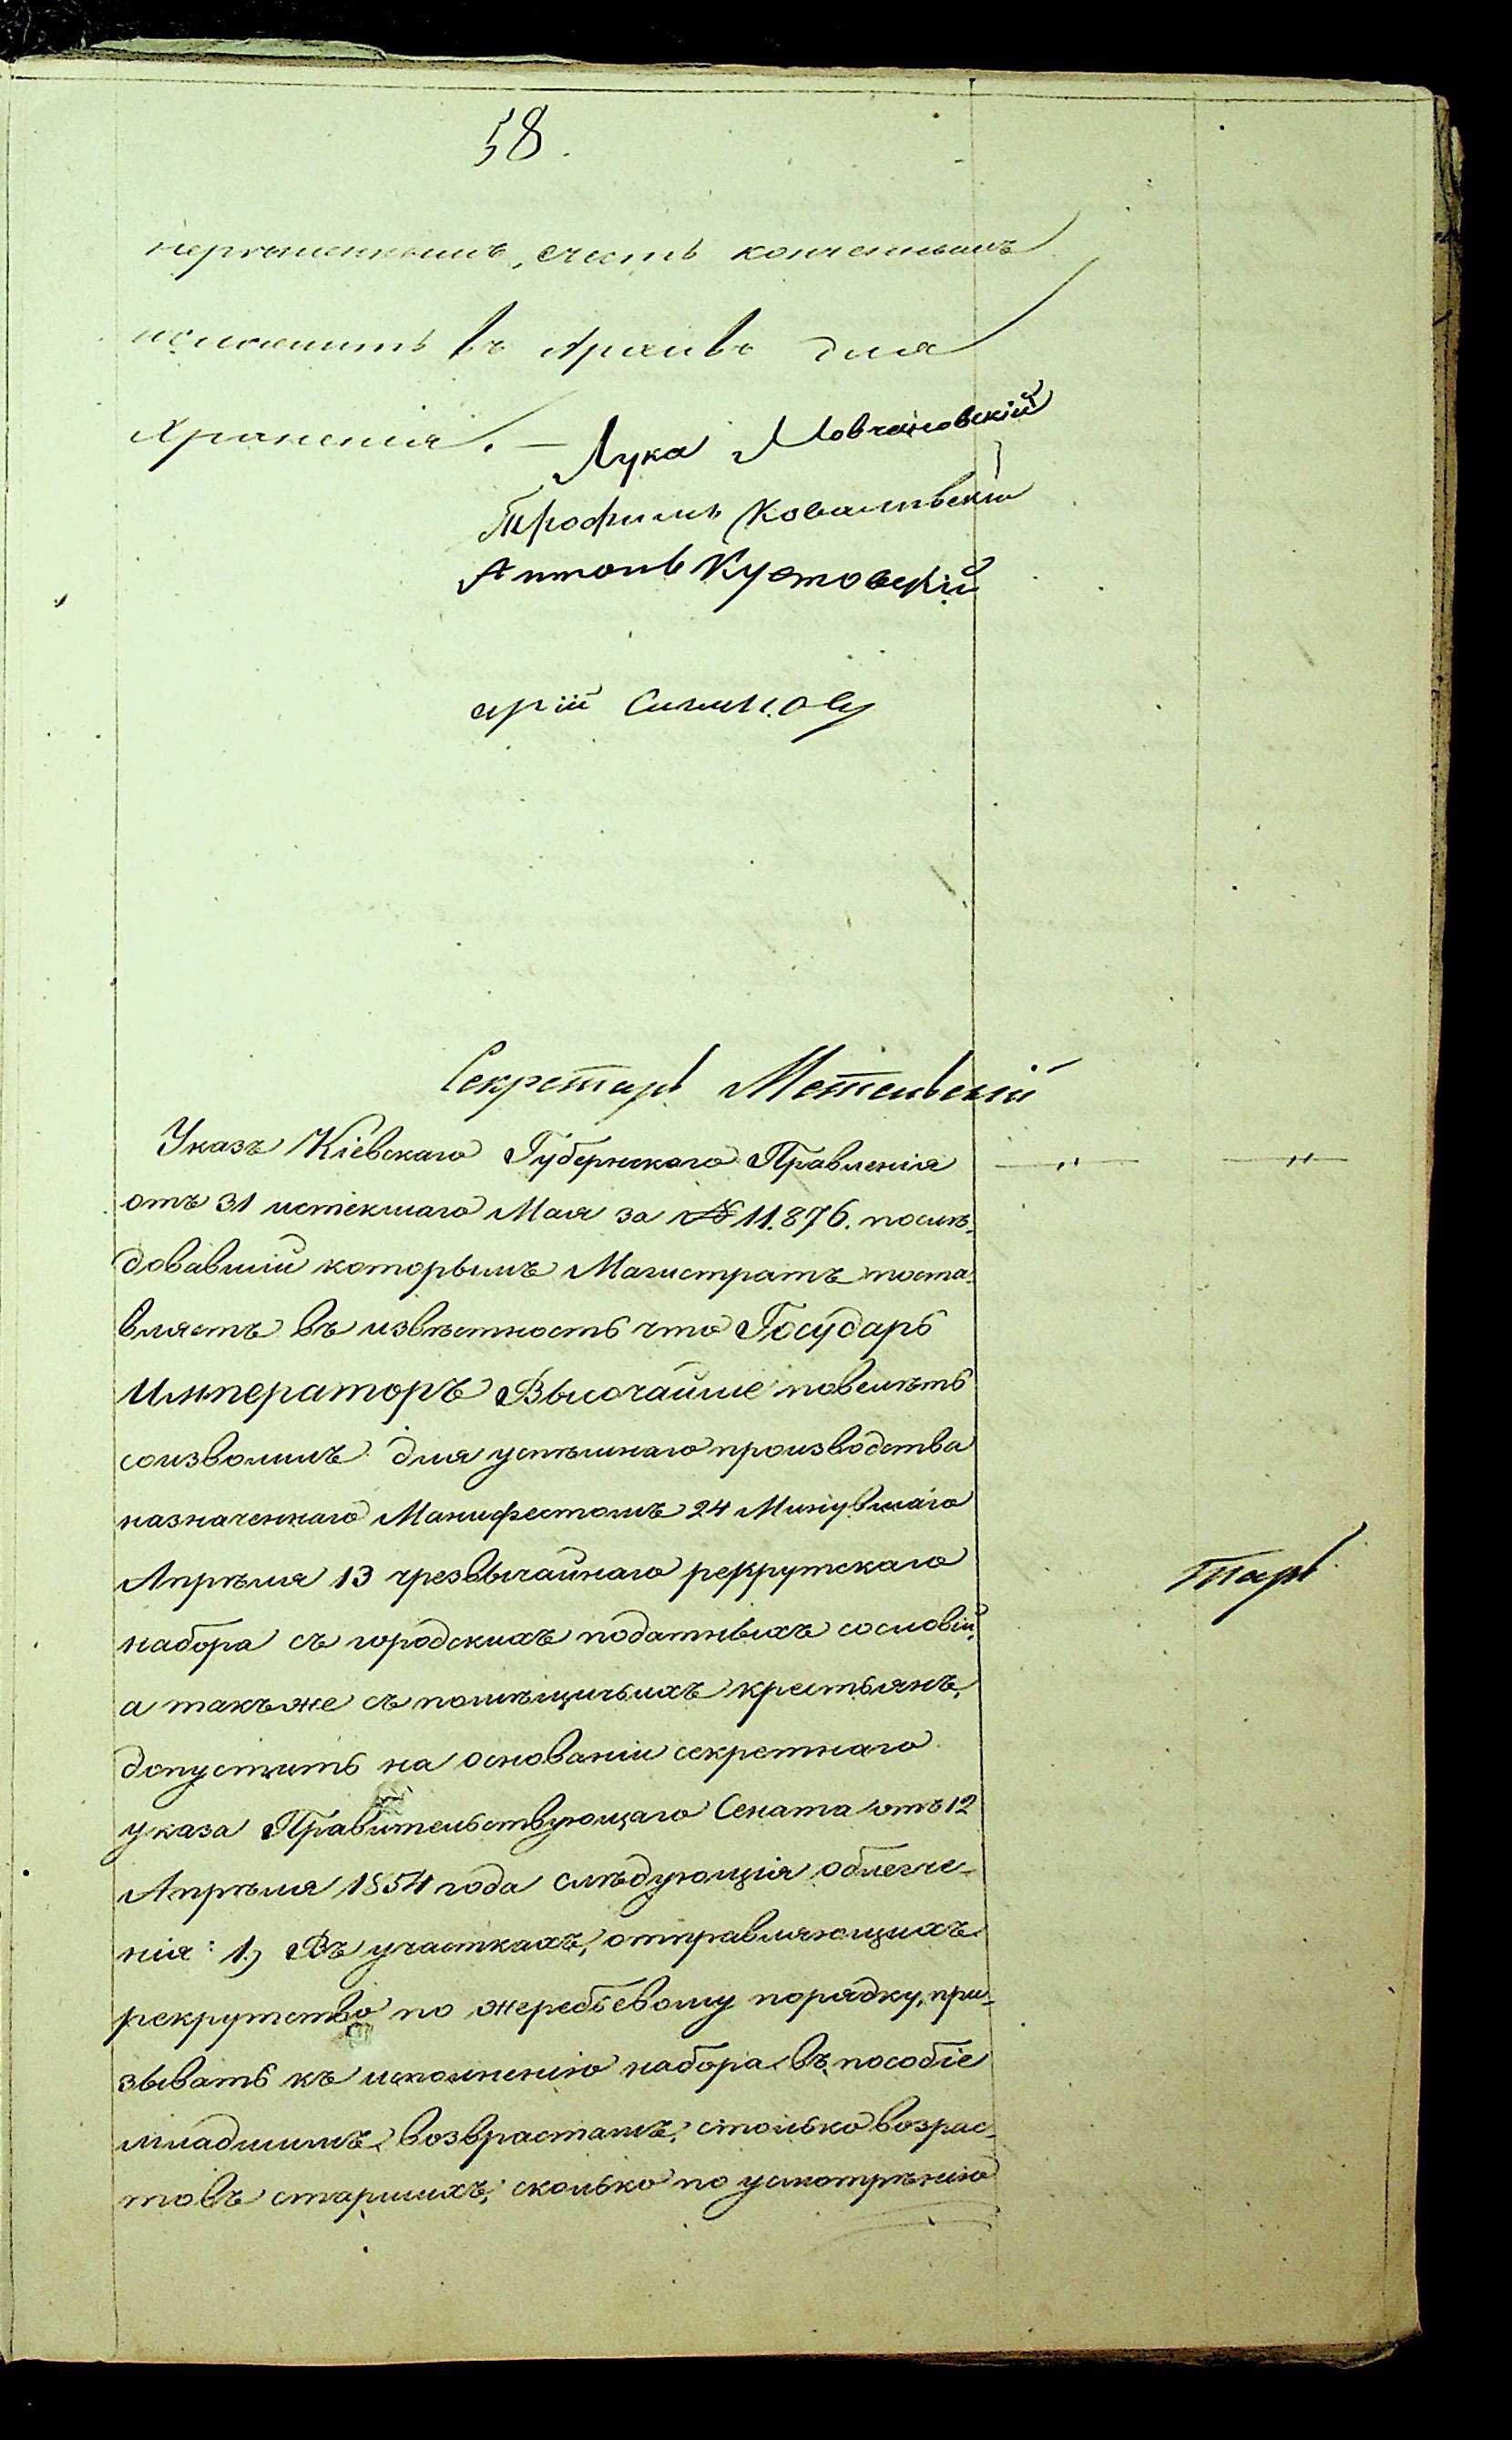 58.
нерѣшеннымъ, счесть конченнымъ
положить въ Архивъ для
храненія. —
Лука Мовчановскій
Трофимъ Ковальскій
Антонъ Кустовскій
арій
Секретарь
Указъ Кіевскаго Губернскаго Правленія — " — — " —
отъ 31 истекшаго Мая за № 11.876. послѣ-
довавшій которымъ Магистратъ поста-
вляетъ въ извѣстность что Государь
Императоръ Высочайше повелѣть
соизволилъ для успѣшнаго производства
назначеннаго Манифестомъ 24 Минувшаго
Апрѣля 13 чрезвычайнаго рекрутскаго
тарь
набора съ городскихъ податныхъ сословій,
а такъ же съ помѣщичьихъ крестьянъ,
допустить на основаніи секретнаго
указа Правительствующаго Сената отъ 12
Апрѣля 1854 года слѣдующія облегче-
нія: 1) Въ участкахъ, отправляющихъ
рекрутство по жеребьевому порядку, при-
зывать къ исполненію набора въ пособіе
младшимъ возврастамъ, столько возрас-
товъ старшихъ, сколько по усмотрѣнію